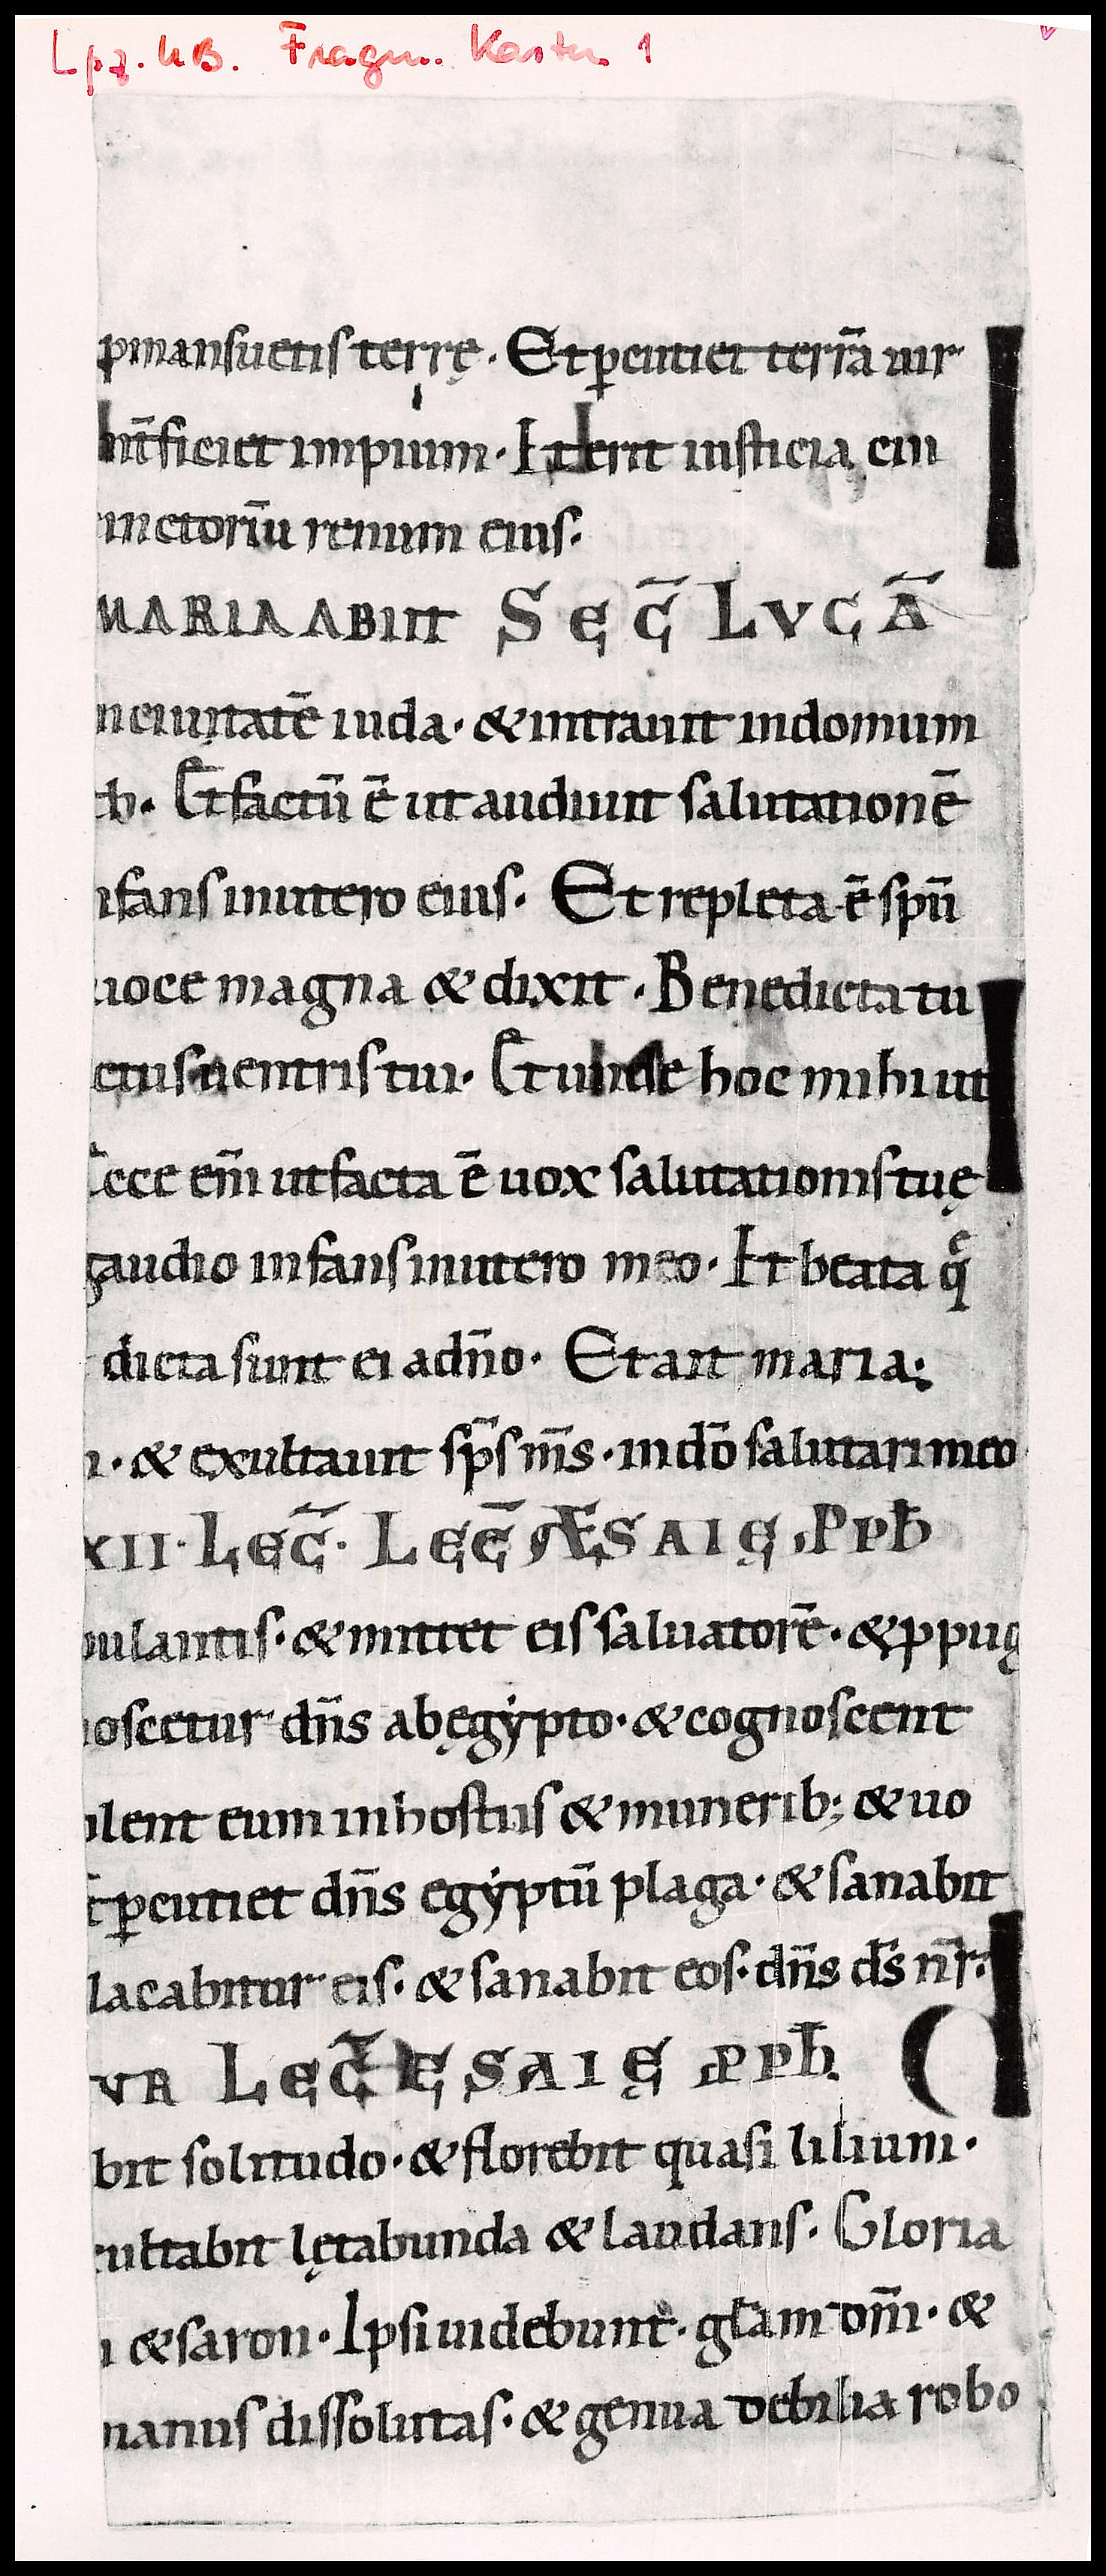 Lpz. UB. Fragm. Kasten 1
p mansuetis terrę. Et p̱cutiet terrā uir
int̄ficiet impium. Et erit iusticia eiu
inctoriū renum eius.
MARIA ABIIT SEC̄ LVCĀ
in ciuitatē iuda. & intrauit in domum
th. Et factū ē ut audiuit salutationē
nfans in utero eius. Et repleta ē sp̄u
uoce magna & dixit. Benedicta tu
ctus uentris tui. Et unde hoc mihi ut
Ecce em̄ ut facta ē uox salutationis tuę
gaudio infans in utero meo. Et beata q̄
dicta sunt ei a dn̄o. Et ait maria;
. & exultauit sp̄s m̄s. in dō salutari meo
XII. LEC̄. LEC̄ ÆSAIĘ PPH̄
bulantis. & mittet eis saluatorē. & ppug
noscetur dn̄s ab ęgypto. & cognoscent
olent eum in hostiis & munerib; & uo
t p̱cutiet dn̄s egyptū plaga. & sanabit
lacabitur eis. & sanabit eos. dn̄s ds̄ nr̄.
VR LEC̄ ESAIĘ PPH̄.
bit solitudo. & florebit quasi lilium.
xultabit lętabunda & laudans. Gloria
i & saron. Ipsi uidebunt. gl̄am dom̄i. &
manus dissolutas. & genua debilia robo